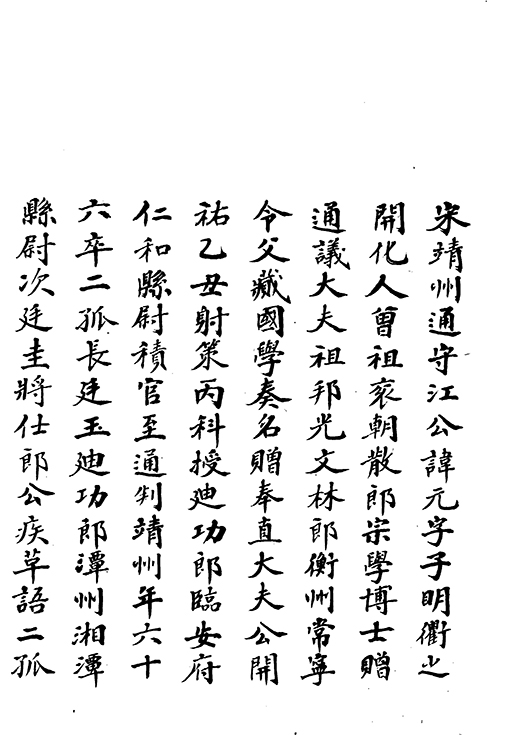 宋靖州通守江公諱元字子明衢之
開化人曾祖衮朝散郎宗學博士贈
通議大夫祖邦光文林郎衡州常寧
令父藏國學奏名贈奉直大夫公開
祐乙丑射策丙科授廸功郎臨安府
仁和縣尉積官至通判靖州年六十
六卒二孤長廷玉廸功郎潭州湘潭
縣尉次廷圭將仕郎公疾草語二孤